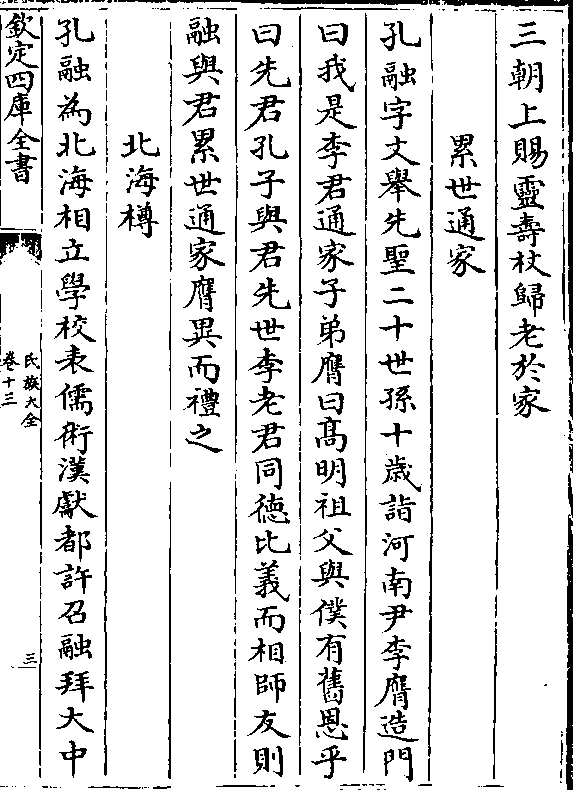 三朝上賜靈壽杖歸老於家
累世通家
孔融字文舉先聖二十世孫十歲詣河南尹李膺造門
曰我是李君通家子弟膺曰髙明祖父與僕有舊恩乎
曰先君孔子與君先世李老君同德比義而相師友則
融與君累世通家膺異而禮之
北海樽
孔融為北海相立學校表儒術漢獻都許召融拜大中
欽定四庫全書
氏族大全
卷十三
三